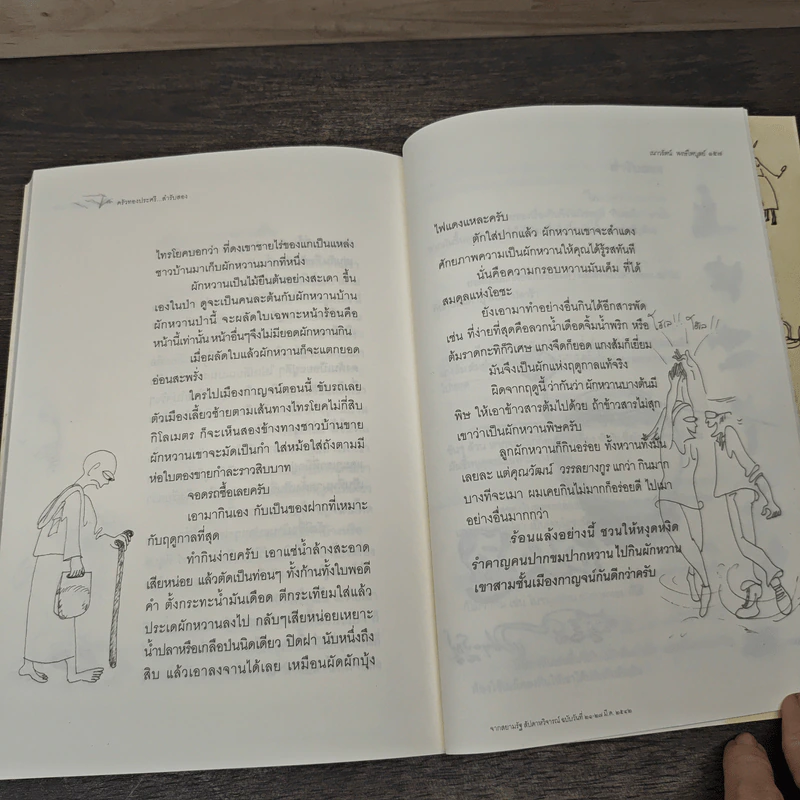 ครัวทองประศรี...สำรับสอง
ไทรโยคบอกว่า ที่ดงเขาชายไร่ของแกเป็นแหล่ง
ชาวบ้านมาเก็บผักหวานมากที่หนึ่ง
ผักหวานเป็นไม้ยืนต้นอย่างสะเดา ขึ้น
เองในป่า ดูจะเป็นคนละต้นกับผักหวานบ้าน
ผักหวานป่านี้ จะผลัดใบเฉพาะหน้าร้อนคือ
หน้านี้เท่านั้น หน้าอื่นๆจึงไม่มียอดผักหวานกิน
เมื่อผลัดใบแล้วผักหวานก็จะแตกยอด
อ่อนสะพรั่ง
ใครไปเมืองกาญจน์ตอนนี้ ขับรถเลย
ตัวเมืองเลี้ยวซ้ายตามเส้นทางไทรโยคไม่กี่สิบ
กิโลเมตร ก็จะเห็นสองข้างทางชาวบ้านขาย
ผักหวานเขาจะมัดเป็นกำ ใส่หม้อใส่ถังตามมี
ห่อใบตองขายกำละราวสิบบาท
จอดรถซื้อเลยครับ
เอามากินเอง กับเป็นของฝากที่เหมาะ
กับฤดูกาลที่สุด
ทำกินง่ายครับ เอาแช่น้ำล้างสะอาด
เสียหน่อย แล้วตัดเป็นท่อนๆ ทั้งก้านทั้งใบพอดี
คำ ตั้งกระทะน้ำมันเดือด ตีกระเทียมใส่แล้ว
ประเดผักหวานลงไป กลับๆเสียหน่อยเหยาะ
น้ำปลาหรือเกลือป่นนิดเดียว ปิดฝา นับหนึ่งถึง
สิบ แล้วเอาลงจานได้เลย เหมือนผัดผักบุ้ง
เนาวรัตน์ พงษ์ไพบูลย์
ไฟแดงแหละครับ
ตักใส่ปากแล้ว ผักหวานเขาจะสำแดง
ศักยภาพความเป็นผักหวานให้คุณได้รู้รสทันที
นั่นคือความกรอบหวานมันเค็ม ที่ได้
สมดุลแห่งโอชะ
ยังเอามาทำอย่างอื่นกินได้อีกสารพัด
เช่น ที่ง่ายที่สุดคือลวกน้ำเดือดจิ้มน้ำพริก หรือ
ต้มราดกะทิก็วิเศษ แกงจืดก็ยอด แกงส้มก็เยี่ยม
มันจึงเป็นผักแห่งฤดูกาลแท้จริง
ผิดจากฤดูนี้ว่ากันว่า ผักหวานบางต้นมี
พิษ ให้เอาข้าวสารต้มไปด้วย ถ้าข้าวสารไม่สุก
เขาว่าเป็นผักหวานพิษครับ
ลูกผักหวานก็กินอร่อย ทั้งหวานทั้งมัน
เลยละ แต่คุณวัฒน์ วรรลยางกูร แกว่า กินมาก
บางทีจะเมา ผมเคยกินไม่มากก็อร่อยดี ไปเมา
อย่างอื่นมากกว่า
ร้อนแล้งอย่างนี้ ชวนให้หงุดหงิด
รำคาญคนปากขมปากหวาน ไปกินผักหวาน
เขาสามชั้นเมืองกาญจน์กันดีกว่าครับ
จากสยามรัฐ สัปดาหวิจารณ์ ฉบับวันที่ ๒๑-๒๗ มี.ค. ๒๕๔๒